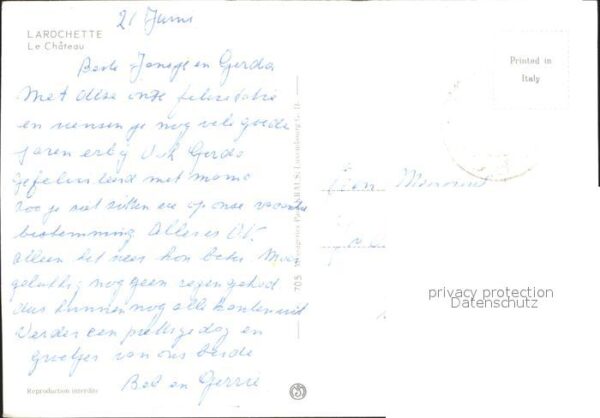 21 Juni
LAROCHETTE
Le Château
Beste Jansje en Gerda
Met deze onze felicitatie
en wensen je nog vele goede
jaren erbij Ook Gerda
gefeliciteerd met mama
Zoo je ziet zitten we op onze
bestemming Alles es O.K.
alleen het weer kon beter Maar
gelukkig nog geen regen gehad
dus kunnen nog alle kanten uit
Verder een prettige dag en
groetjes van ons beide
Bet en Gerrie
Reproduction interdite
705
Printed in
Italy
privacy protection
Datenschutz